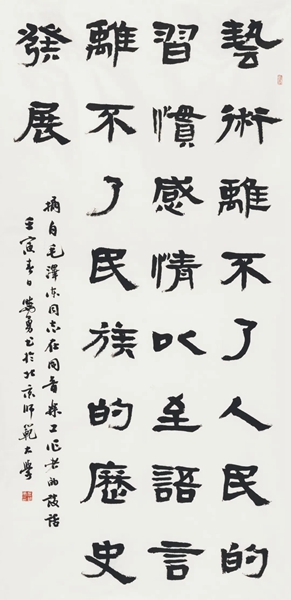 藝術離不了人民的
習慣感情以至語言
離不了民族的歷史
發展
摘自毛澤東同志在同音樂工作者的談話
壬寅春日 勇書於北京師範大學